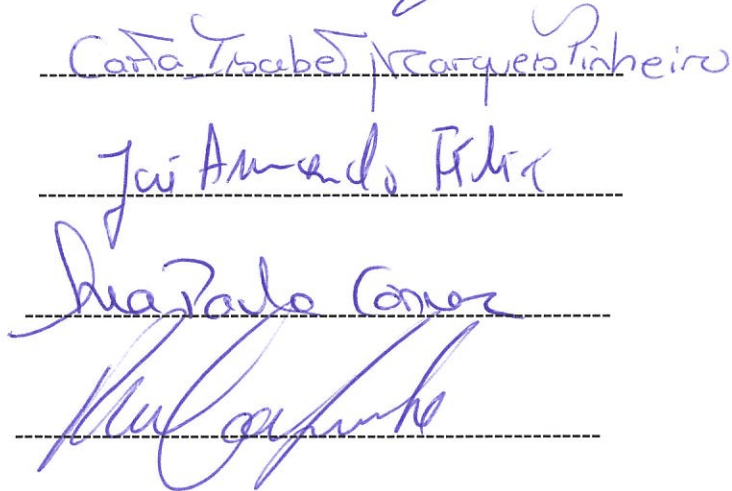 Carla Isabel Marques Pinheiro
José Armando Félix
Ana Paula Gomes